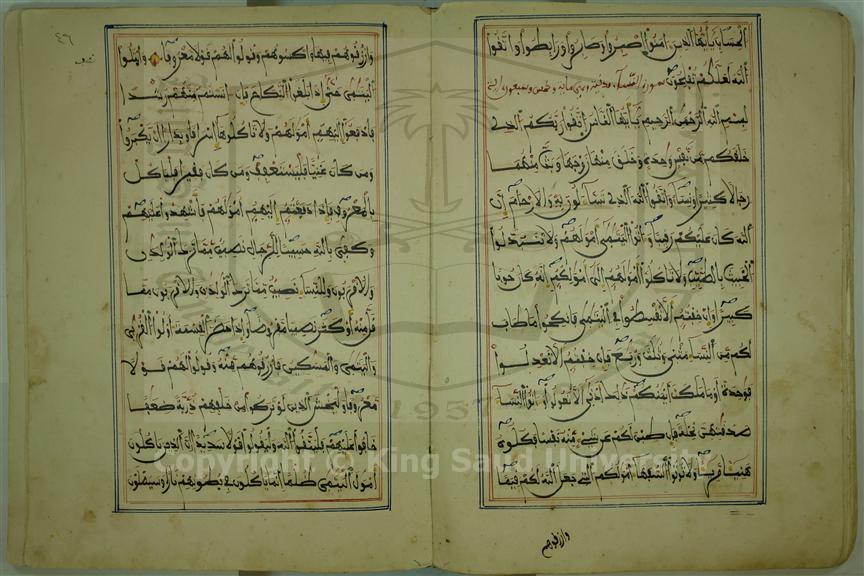 الحساب يا أيها الذين امنوا اصبروا وصابروا ورابطوا واتقوا
الله لعلكم تفلحون سورة النساء مدنية وهي مائة وخمس وسبعون آية
بسم الله الرحمن الرحيم يا أيها الناس اتقوا ربكم الذي
خلقكم من نفس وحدة وخلق منها زوجها وبث منهما
رجالا كثيرا ونساء واتقوا الله الذي تساءلون به والارحام إن
الله كان عليكم رقيبا وآتوا اليتمى أمولهم ولا تتبدلوا
الخبيث بالطيب ولا تاكلوا أمولهم إلى امولكم إنه كان حوبا
كبيرا وإن خفتم ألا تقسطوا في اليتمى فانكحوا ما طاب
لكم من النساء مثنى وثلث وربع فإن خفتم ألا تعدلوا
فوحدة أو ما ملكت أيمنكم ذلك ادنى ألا تعولوا وآتوا النساء
صدقتهن نحلة فإن طبن لكم عن شيء منه نفسا فكلوه
هنيئا مريئا ولا توتوا السفهاء أمولكم التي جعل الله لكم قيما
وارزقوهم
٤٦
وارزقوهم فيها واكسوهم وقولوا لهم قولا معروفا وابتلوا
اليتمى حتى إذا بلغوا النكاح فإن انستم منهم رشدا
فادفعوا إليهم أمولهم ولا تاكلوها إسرافا وبدارا ان يكبروا
ومن كان غنيا فليستعفف ومن كان فقيرا فلياكل
بالمعروف فإذا دفعتم إليهم أمولهم فأشهدوا عليهم
وكفى بالله حسيبا للرجال نصيب مما ترك الولدن
والاقربون وللنساء نصيب مما ترك الولدن والاقربون مما
قل منه أو كثر نصيبا مفروضا وإذا حضر القسمة أولوا القربى
واليتمى والمسكين فارزقوهم منه وقولوا لهم قولا
معروفا وليخش الذين لو تركوا من خلفهم ذرية ضعفا
خافوا عليهم فليتقوا الله وليقولوا قولا سديدا إن الذين ياكلون
امول اليتمى ظلما إنما ياكلون في بطونهم نارا وسيصلون
1957
Copyright © King Saud University